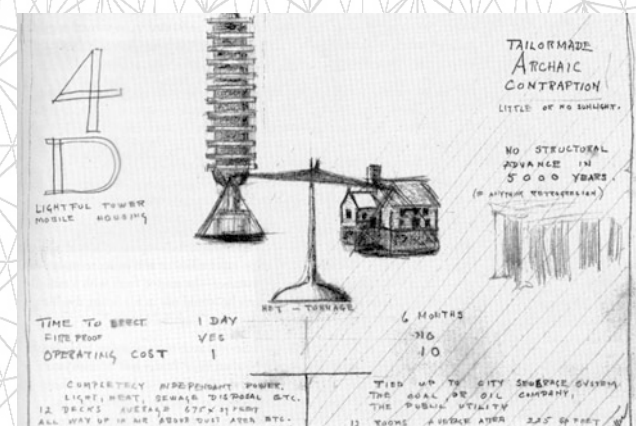 4
D
LIGHTFUL TOWER
MOBILE HOUSING
TAILORMADE
ARCHAIC
CONTRAPTION
LITTLE OR NO SUNLIGHT.
NO STRUCTURAL
ADVANCE IN
5000 YEARS.
RETROGRESSION)
TONNAGE
TIME TO ERECT 1 DAY 6 MONTHS
FIREPROOF YES NO
OPERATING COST 1 10
COMPLETELY INDEPENDANT POWER,
LIGHT, HEAT, SEWAGE DISPOSAL ETC.
12 DECKS AVERAGE 675
ALL WAY UP IN AIR ABOVE DUST AREA ETC.
TIED UP TO CITY SEWERAGE SYSTEM
THE COAL, OR OIL COMPANY,
THE PUBLIC UTILITY
12 ROOMS AVERAGE AREA 225 SQ FEET